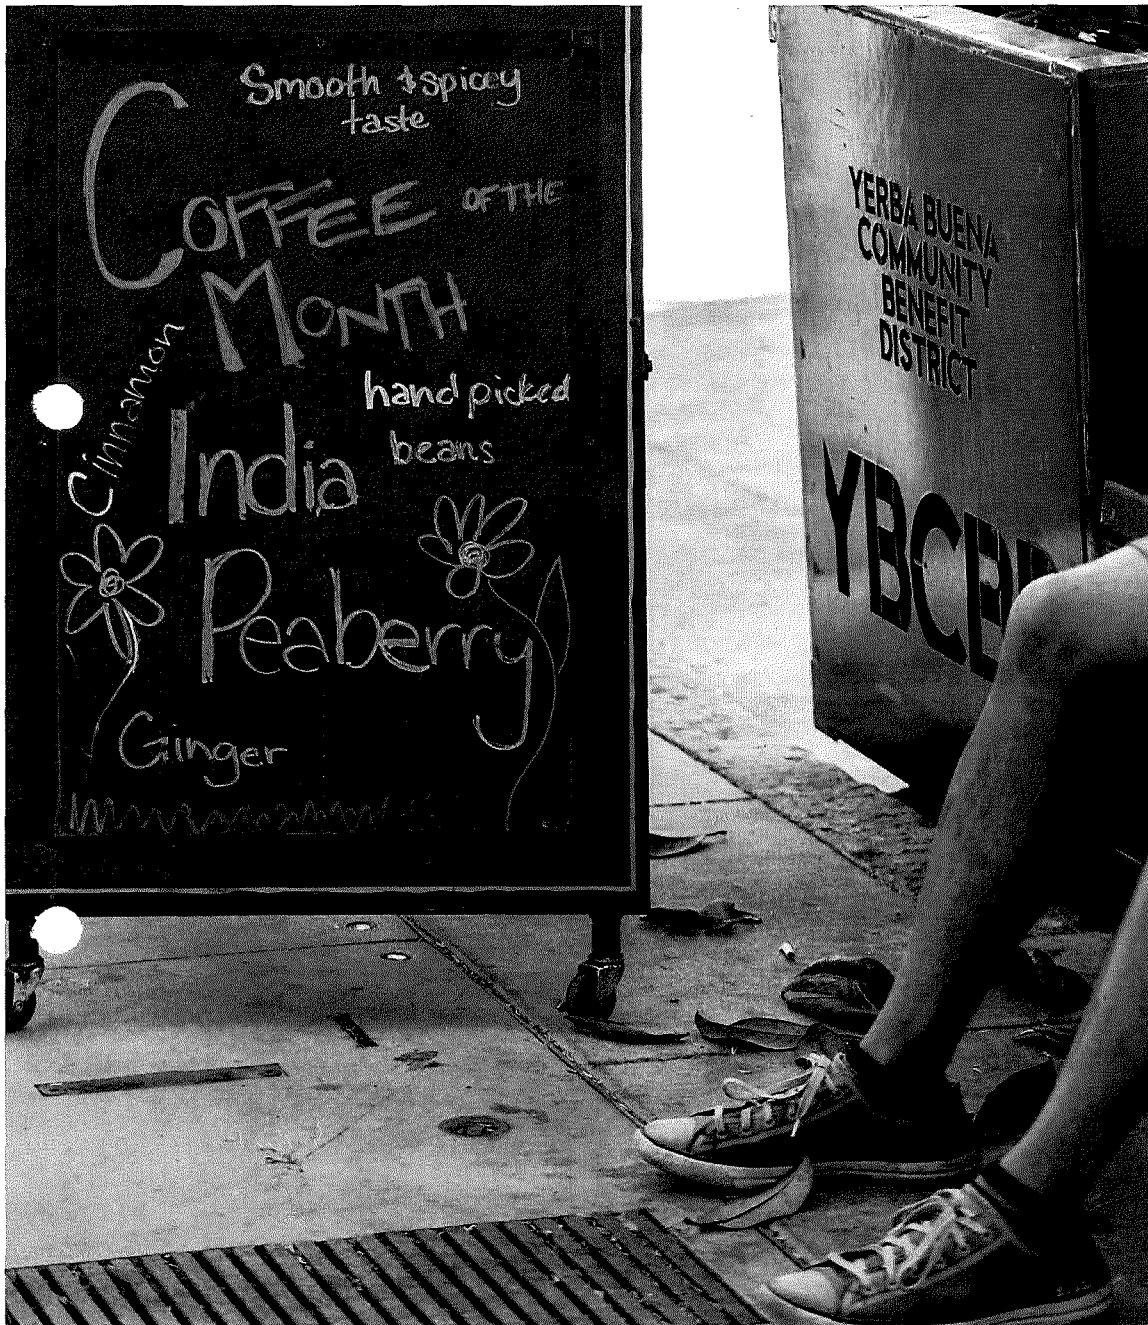 Smooth & spicey
taste
COFFEE OF THE
MONTH
Cinnamon
hand picked
beans
India
Peaberry
Ginger
YERBA BUENA
COMMUNITY
BENEFIT
DISTRICT
YBCBD